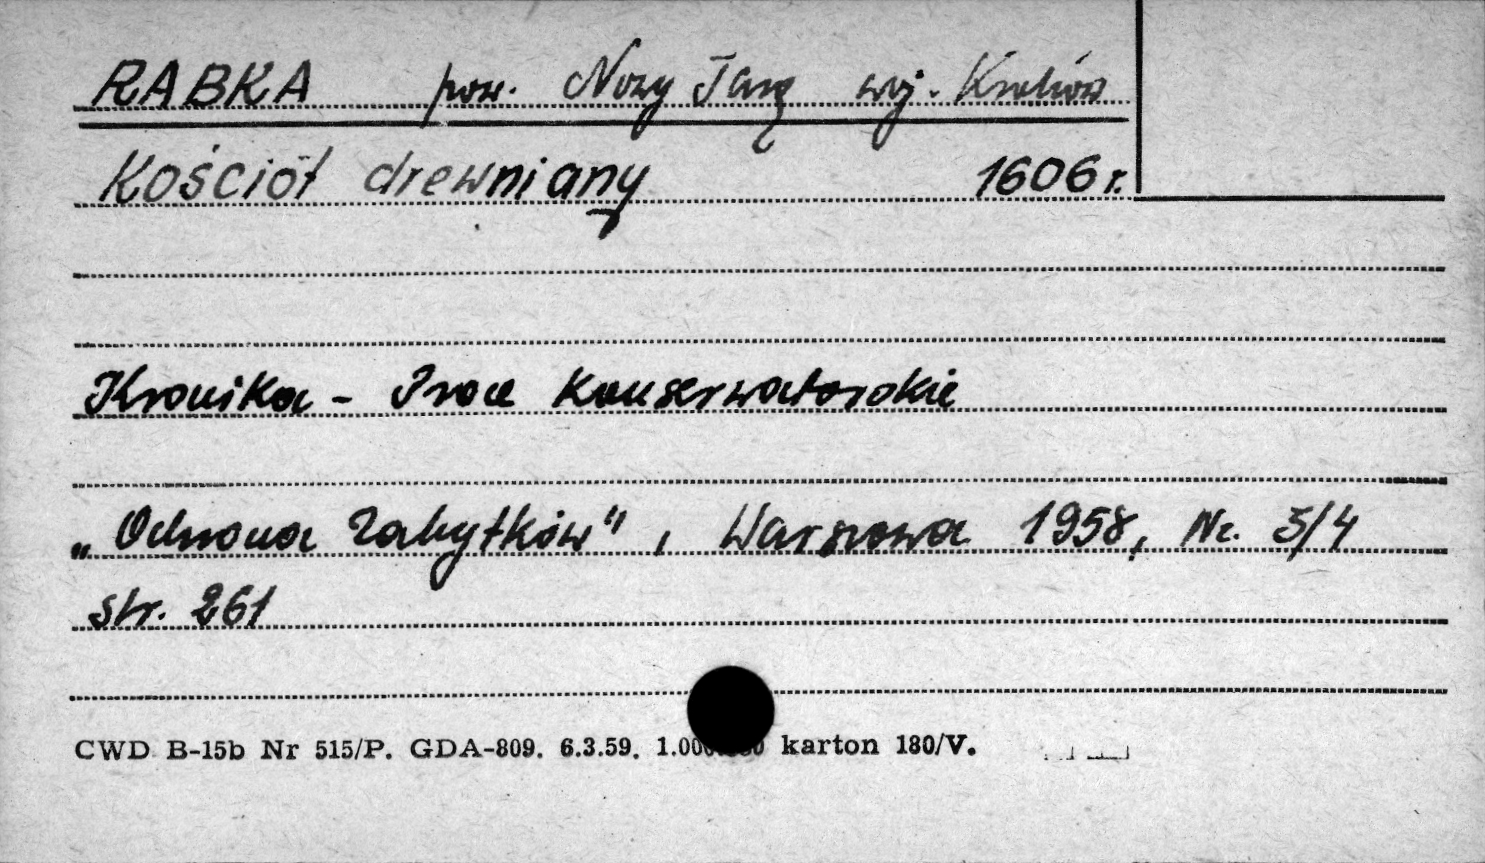 RABKA pow. Nowy Targ woj. Kraków
Kościół drewniany 1606 r.
Kronika - Prace Konserwatorskie
„Ochrona Zabytków", Warszawa 1958, Nr. 3/4
str. 261
CWD B-15b Nr 515/P. GDA-809. 6.3.59. karton 180/V.